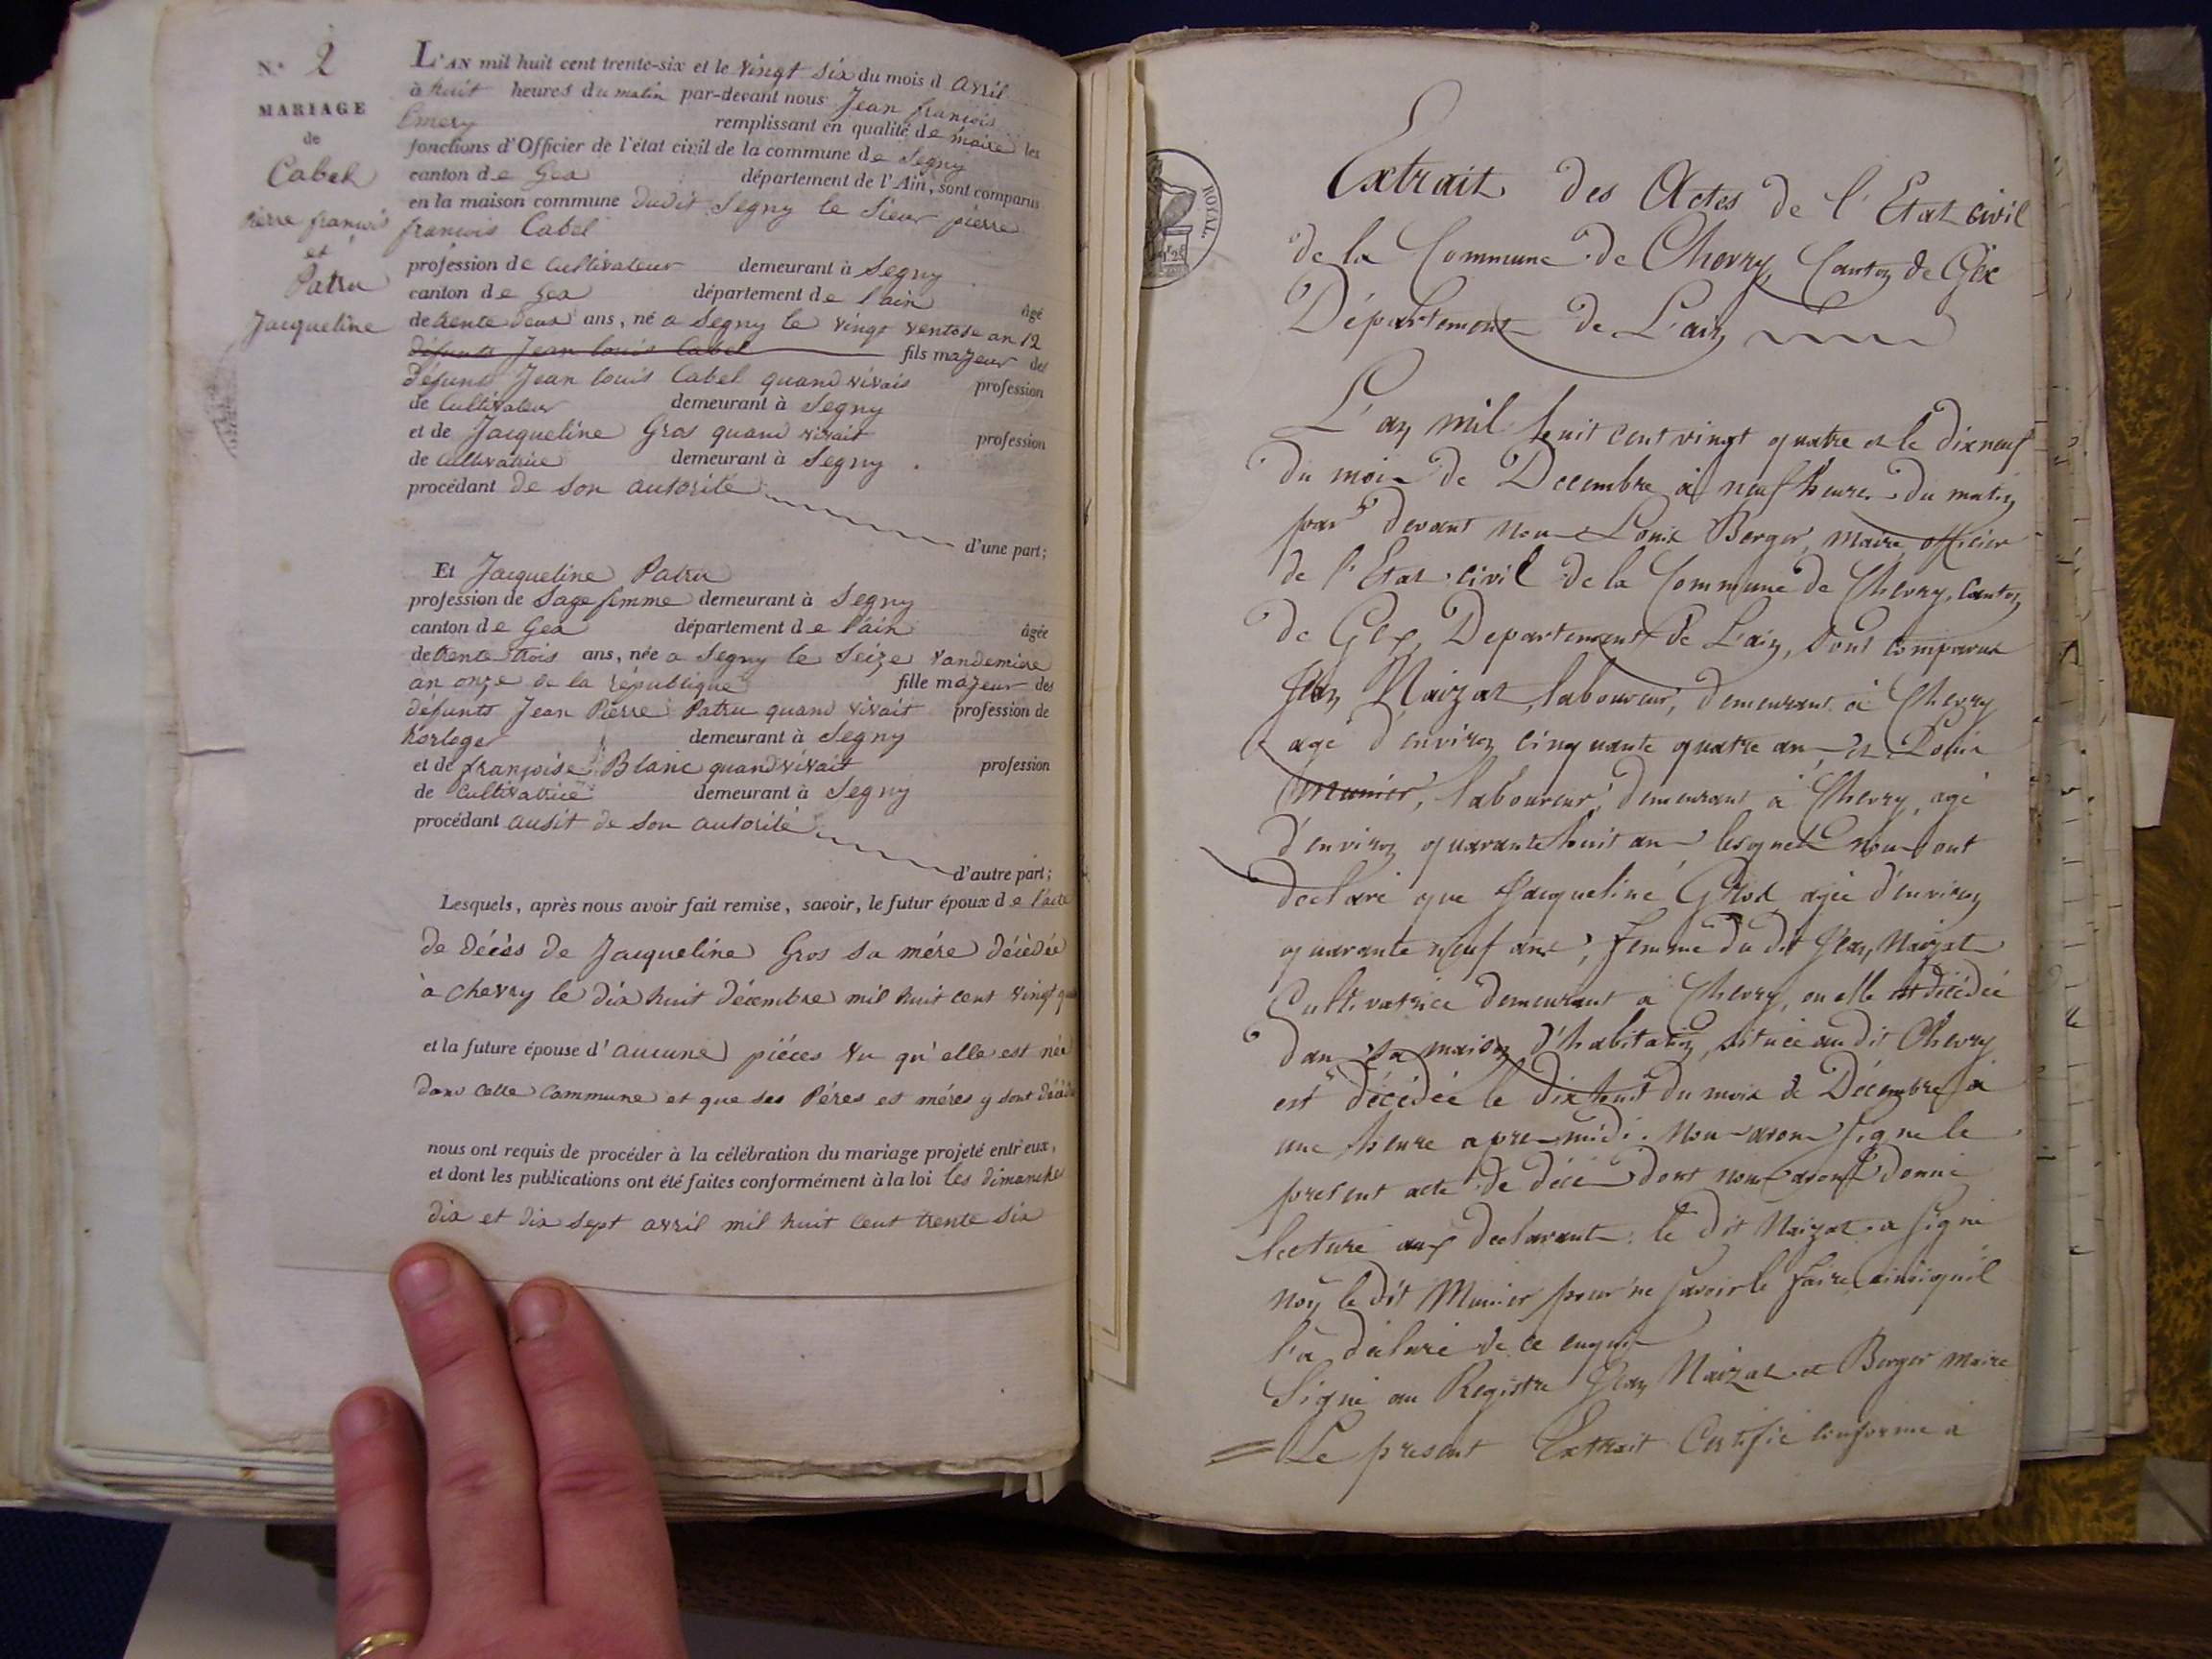 N.º 2
MARIAGE
de
Cabel
pierre françois
et
Patru
Jacqueline
L'AN mil huit cent trente-six et le vingt six du mois d avril
à huit heures du matin par-devant nous Jean françois
Emery remplissant en qualité de maire les
fonctions d'Officier de l'état civil de la commune de Segny
canton de Gex département de l'Ain, sont comparus
en la maison commune dudit Segny le Sieur pierre
françois Cabel
profession de Cultivateur demeurant à Segny
canton de Gex département de l'ain âgé
de trente deux ans, né a Segny le vingt ventose an 12
défunts Jean louis Cabel fils majeur des
defunts Jean louis Cabel quand vivais profession
de Cultivateur demeurant à Segny
et de Jacqueline Gros quand vivait profession
de cultivatrice demeurant à Segny .
procédant de son autorité
d'une part;
Et Jacqueline Patru
profession de Sage femme demeurant à Segny
canton de Gex département de l'ain âgée
de trente trois ans, née a Segny le Seize vandemiere
an onze de la république fille majeur des
défunts Jean Pierre Patru quand vivait profession de
horloger demeurant à Segny
et de françoise Blanc quand vivait profession
de Cultivatrice demeurant à Segny
procédant ausit de son autorité
d'autre part;
Lesquels, après nous avoir fait remise, savoir, le futur époux de l'acte
de décès de Jacqueline Gros sa mére décédée
à chevry le dix huit décembre mil huit cent vingt
et la future épouse d'aucune piéces vu qu'elle est née
dans cette commune et que ses Péres et méres y sont
nous ont requis de procéder à la célébration du mariage projeté entr'eux,
et dont les publications ont été faites conformément à la loi les dimanches
dix et dix sept avril mil huit cent trente six
ROYAL.
Extrait des Actes de l'Etat civil
de la Commune de Chevry, Canton de Gex
Département de L'ain
L'an mil huit cent vingt quatre et le dix neuf
du mois de Decembre à neuf heures du matin
par devant nous Louis Berger, maire officier
de l'Etat civil de la Commune de Chevry, Canton
de Gex, Departement de L'ain, Sont comparus
Jean Naizat, laboureur, demeurant à Chevry
agé d'environ cinquante quatre ans, et Louis
Munier, laboureur, demeurant à Chevry, agé
d'environ quarante huit ans lesquels nous ont
declaré que Jacqueline Gros agée d'environ
quarante neuf ans, femme du dit Jean Naizat
Cultivatrice demeurant à Chevry, ou elle est décédée
dans sa maison d'habitation, située au dit Chevry
est décédée le dix huit du mois de Décembre à
une heure apres midi. Nous avons signé le
present acte de décès dont nous avons donné
lecture aux declarants. le dit Naizat a signé
non le dit Munier pour ne savoir le faire ainsi qu'il
l'a déclaré de ce enquis
Signé au Registre Jean Naizat et Berger maire
Le present Extrait Certifié conforme à